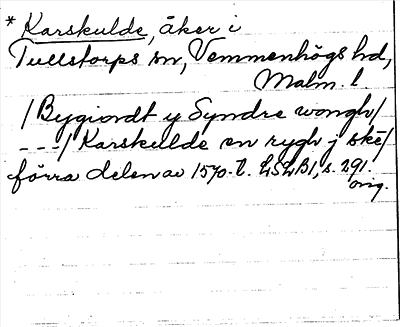 * Karskulde, åker i
Tullstorps sn, Vemmenhögs hd,
Malm. l.
/Bygiordt y Syndre wongh/
---/Karskulde en rygh j skě/
förra delen av 1570-t. LSLB1, s. 291.
orig.